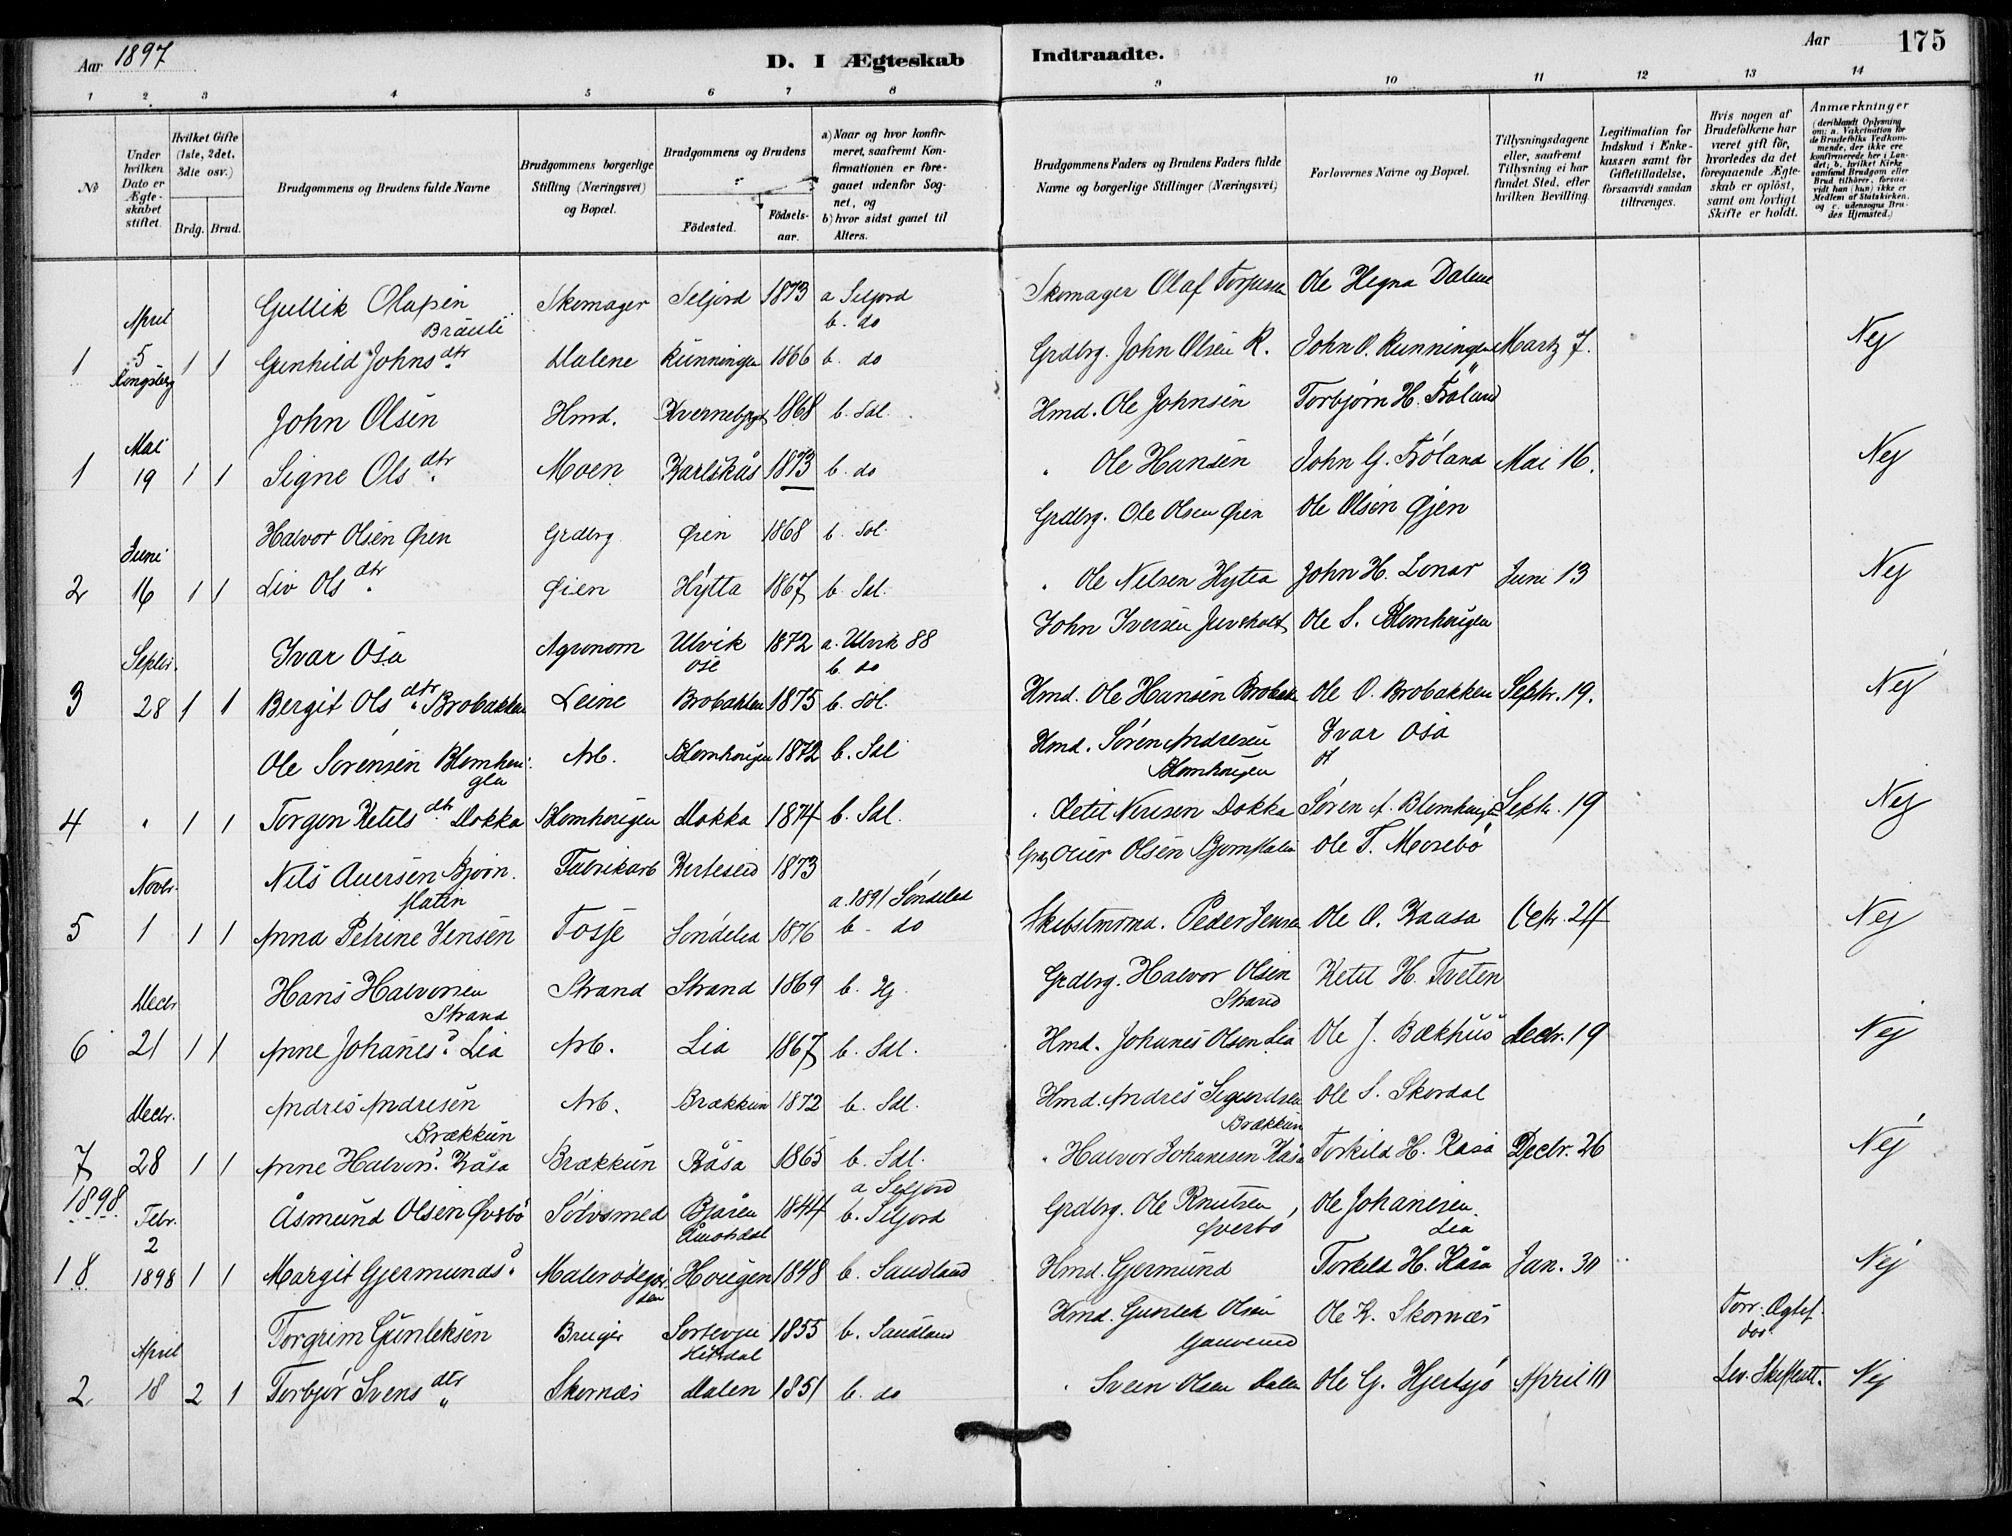 Aar 1897
D. I Ægteskab Indtraadte.
Aar
175
1 2. 3 4 5 6 7 8 9 10 11 12 13 14
No
Under hvilken Dato er Ægteskabet stiftet.
Hvilket Gifte (1ste, 2det, 3die osv.)
Brdg. Brud.
Brudgommens og Brudens fulde Navne
Brudgommens borgerlige Stilling (Næringsvei) og Bopæl.
Brudgommens og Brudens
Födested.
Födselsaar.
a) Naar og hvor konfirmeret, saafremt Konfirmationen er foregaaet udenfor Sognet, og
b) hvor sidst gaaet til Alters.
Brudgommens Faders og Brudens Faders fulde Navne og borgerlige Stillinger (Næringsvei)
Forlovernes Navne og Bopæl.
Tillysningsdagene eller, saafremt Tillysning ei har fundet Sted, efter hvilken Bevilling.
Legitimation for Indskud i Enkekassen samt for Giftetilladelse, forsaavidt saadan tiltrænges.
Hvis nogen af Brudefolkene har været gift för, hvorledes da det foregaaende Ægteskab er oplöst, samt om lovligt Skifte er holdt.
Anmærkninger (deriblandt Oplysning om: a. Vakcination for de Brudefolks Vedkommende, der ikke ere konfirmerede her i Landet; b. hvilket Kirkesamfund Brudgom eller Brud tilhörer, forsaavidt han (hun) ikke er Medlem af Statskirken, og c. udensogns Brudes Hjemsted.)
April Gullik Olafsen Skomager Seljord 1873 a Seljord Skomager Olaf Torjussen Ole Hegna Dalene
Bräuli b. do
1 5 1 1 Gunhild Johns dtr. Dalene Runningen 1866 b. do Grdbrg. John Olsen R. John O. Runningen Martz 7. Nej
Kongsberg
John Olsen Hmd. Kvernebygd 1868 b. Sdl. Hmd. Ole Johnsen Torbjørn H. Fröland
Mai
1 19 1 1 Signe Ols dtr. Moen Karlskås 1873 b. do " Ole Hansen John G. Fröland Mai 16. Nej
Juni Halvor Olsen Øien Grdbrg Øien 1868 b. Sdl. Grdbrg. Ole Olsen Øien Ole Olsen Øjen
2 16 1 1 Liv Ols dtr. Øien Hytta 1867 b. Sdl. " Ole Nelsen Hytta John H. Lonar Juni 13 Nej
Septbr. Ivar Osa Agronom Ulvik 1872 a. Ulvik 88 John Iversen Ole S. Blomhougen
ose b. do
3 28 1 1 Bergit Ols dtr. Brobakken Leine Brobakken 1875 b. Sdl. Hmd. Ole Hansen Brobak Ole O. Brobakken Septr. 19. Nej
Ole Sørensen Blomhougen Arb. Blomhougen 1872 b. Sdl Hmd. Søren Andresen Ivar Osa
Blomhougen
4 " 1 1 Torgen Ketils dtr. Dokka Blomhougen Dokka 1874 b. Sdl. " Ketil Nirisen Dokka Søren A. Blomhaugen Septr. 19 Nej
Novbr. Nils Auersen Bjørnflaten Fabrikarb Kviteseid 1873 Olsen Bjørnflaten Ole T. Morebö
a. 1891 Søndeled
5 1 1 1 Anna Petrine Jensen Fosse Søndeled 1876 b - do Peder Jensen Ole O. Kaasa Octr. 24 Nej
Decbr Hans Halvorsen Strand Strand 1869 b. Hj. Grdbrg. Halvor Olsen Ketil H. Tveten
Strand Strand
6 21 1 1 Anne Johanesd. Lia Arb. Lia 1867 b. Sdl. Hmd. Johanes Olsen Lia Ole J. Bækhus Decbr. 19 Nej
Decbr. Andres Andresen Arb. Brækkun 1872 b. Sdl. Hmd. Andres Segurdsen Ole S. Skordal
Brækkun Brækkun
7 28 1 1 Anne Halvorsd. Kåsa Brækkun Kåsa 1865 b. Sdl. " Halvor Johanesen Kåsa Torkild H. Kasa Decbr. 26 Nej
1898 Febr. a Seljord
Åsmund Olsen Øverbö Sølvsmed Bjåen 1844 b. Seljord Grdbrg. Ole Knutsen Ole Johanesen
2 Åmotsdal Øverbö Lia
1 8 1898 1 1 Margit Gjermundsd. Hougen 1848 b. Sauland Hmd. Gjermund Torkild H. Kåsa Jan. 30 Nej
April Torgrim Gunleksen Bruger 1855 b. Sauland Hmd. Gunlek Olsen Ole K. Skornæs Forr. Ægtef.
Hitdal død.
2 18 2 1 Torbjør Svens dtr. Skornæs Dalen 1851 b. do " Svein Olsen Dalen Ole G. Hjertsjö April 10 Lev. Nej